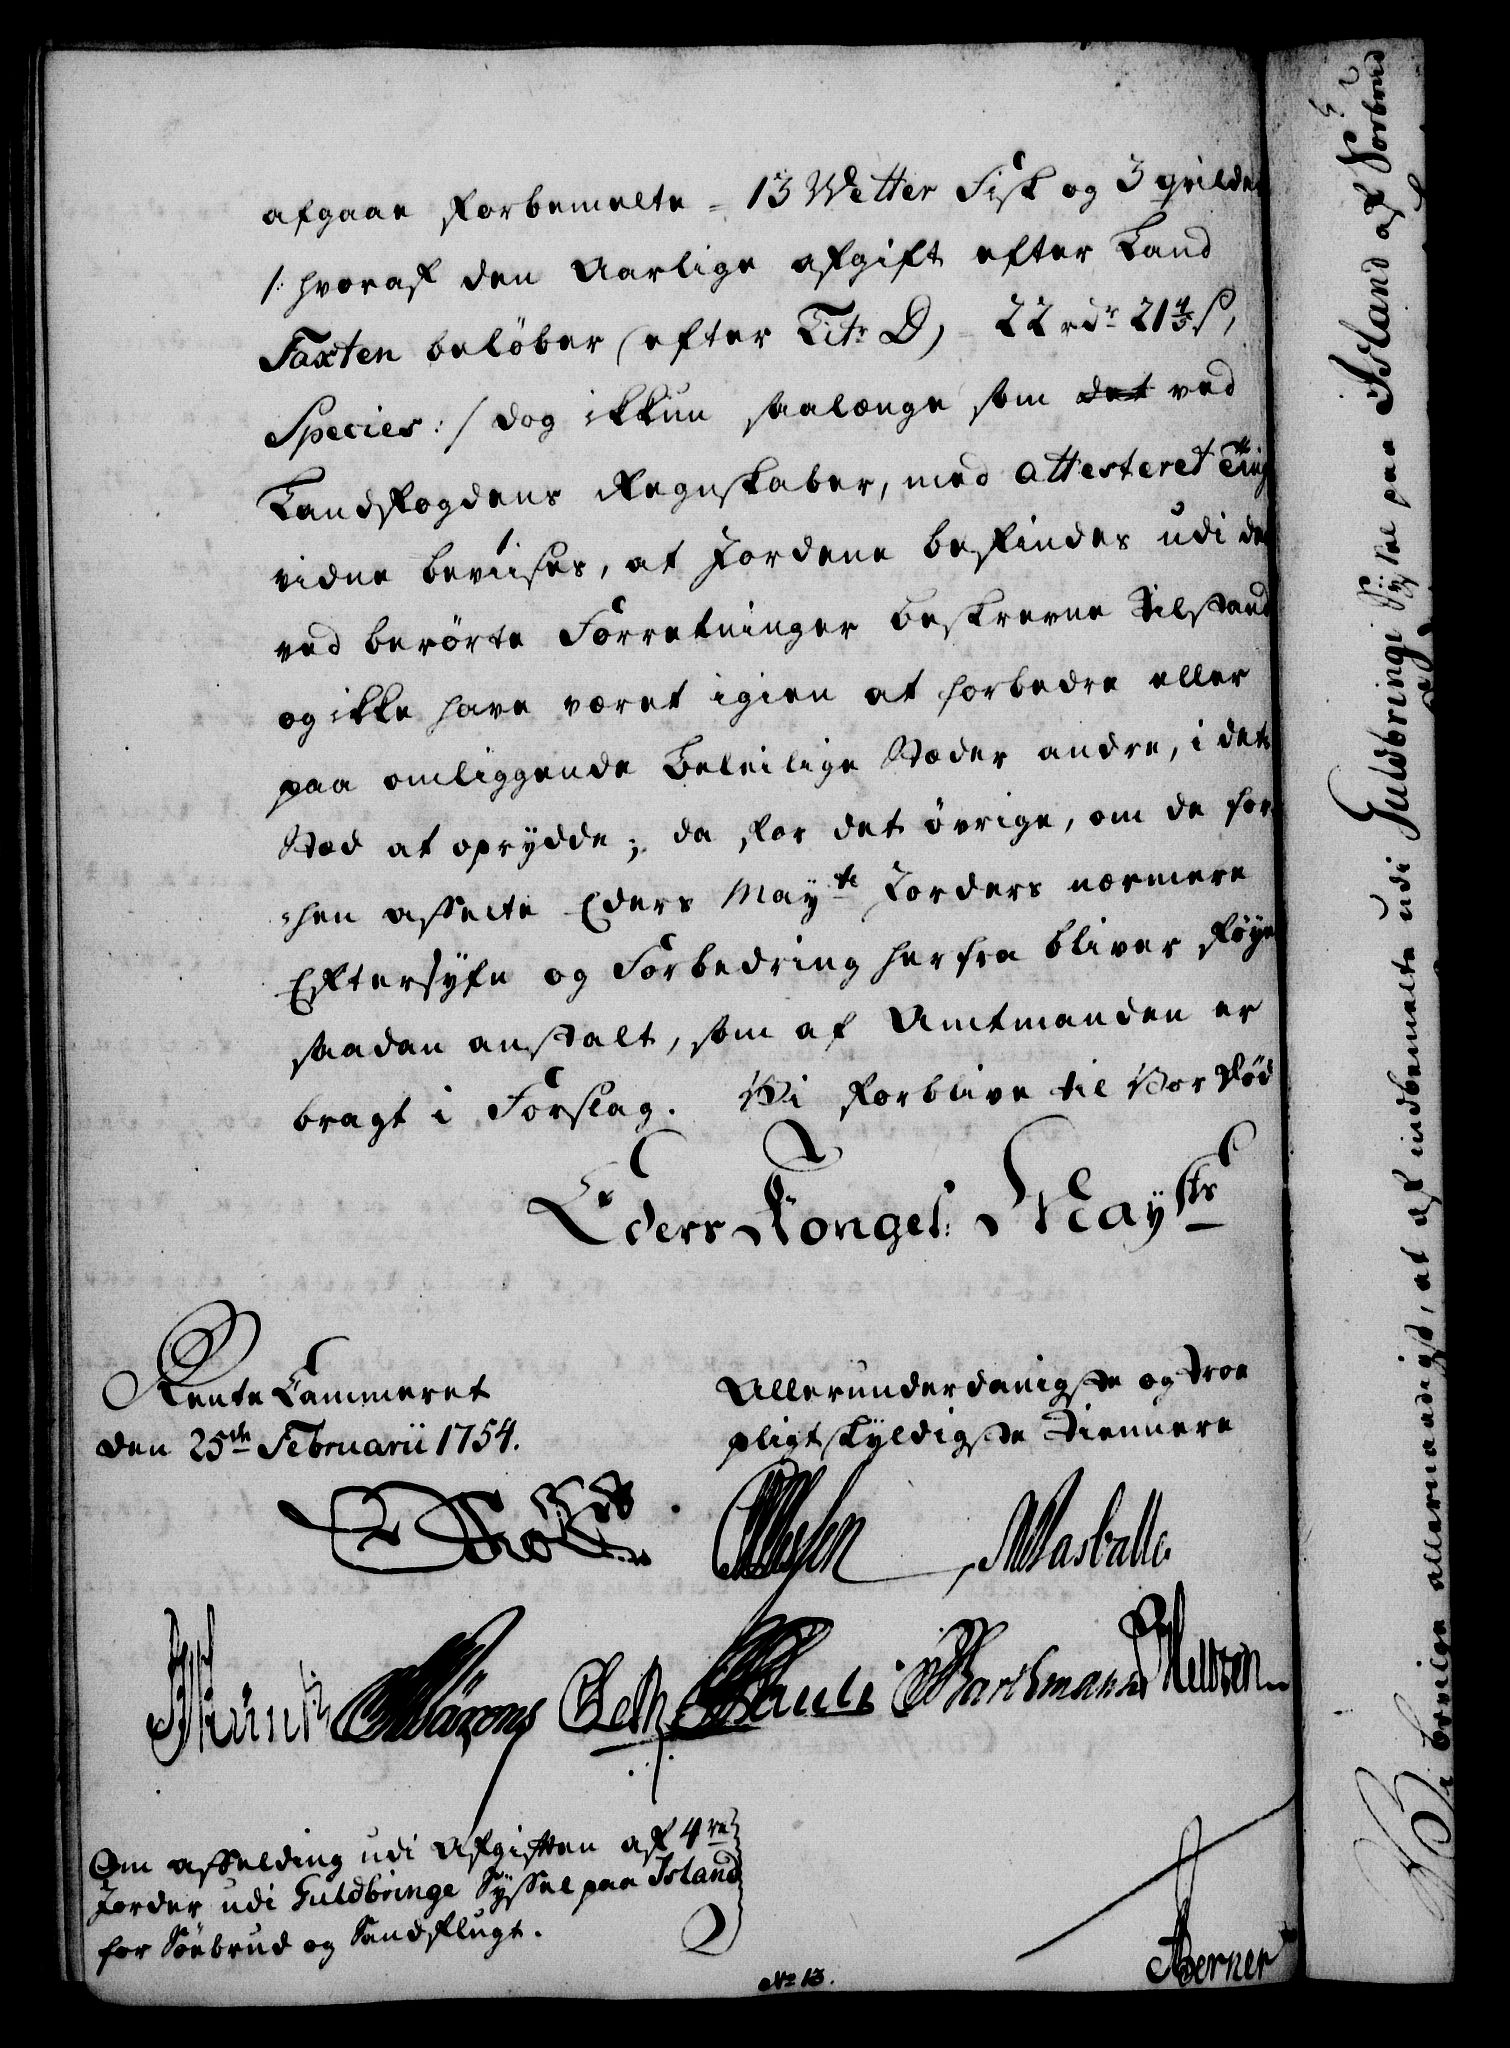 afgaae forbemelte = 13 Wetter Fisk og 3 qvilder
/: hvoraf den Aarlige afgift efter Land
Taxten beløber (efter Litr D) = 22 rdr 21 4/5 ß,
Species :/ dog ikkun saalænge som det ved
Landfogdens Regnskaber, med attesteret Ting
vidne beviises, at Jordene befindes udi den
ved berørte Forretninger beskrevne Tilstand
og ikke have været igien at forbedre eller
paa omliggende beleilige Stæder andre, i det
Stæd at oprydde; da for det øvrige, om de for
hen affelte Eders Mayts Jorders nærmere
Eftersyn og Forbedring herfra bliver føyet
saadan anstalt, som af Amtmanden er
bragt i Forslag. Vi forblive til Vor Død
Eders Kongel: Mayts
Rente Cammeret
den 25de Februarii 1754.
Allerunderdanigste og troe
pligtskyldigste Tiennere
Masballe
Pauli
Berner
Om affelding udi Afgiften af 4re
Jorder udi Guldbringe Syssel paa Island
for Søebrud og Sandflugt.
No 13.
Vi bevilge allernaadigst, at af indbemelte udi Guldbringe Syssel paa Island af Søebrud